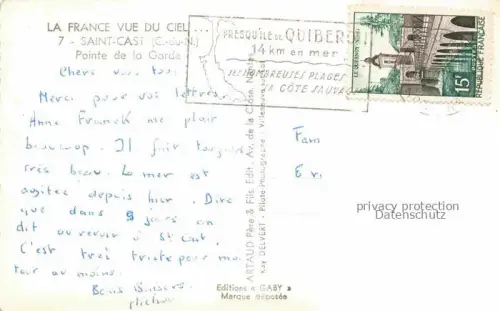 LA FRANCE VUE DU CIEL ...
7 - SAINT-CAST (C.-du-N.)
Pointe de la Garde
PRESQU'ILE DE QUIBERON
14 km en mer
SES NOMBREUSES PLAGES
SA CÔTE SAUVAGE
LE QUESNOY
15F
REPUBLIQUE FRANÇAISE
Chers vous tous
Merci pour vos lettres.
Anne Franck me plait
beaucoup. Il fait toujours
très beau. La mer est
agitée depuis hier. Dire
que dans 9 jours on
dit au revoir à St Cast.
C'est très triste pour moi
tout au moins.
Bons Baisers
ARTAUD Père & Fils, Edit., Av. de la Close, Nantes
Ray DELVERT - Pilote-Photographe - Villeneuve-sur-Lot
Fam
Editions « GABY »
Marque déposée
privacy protection
Datenschutz